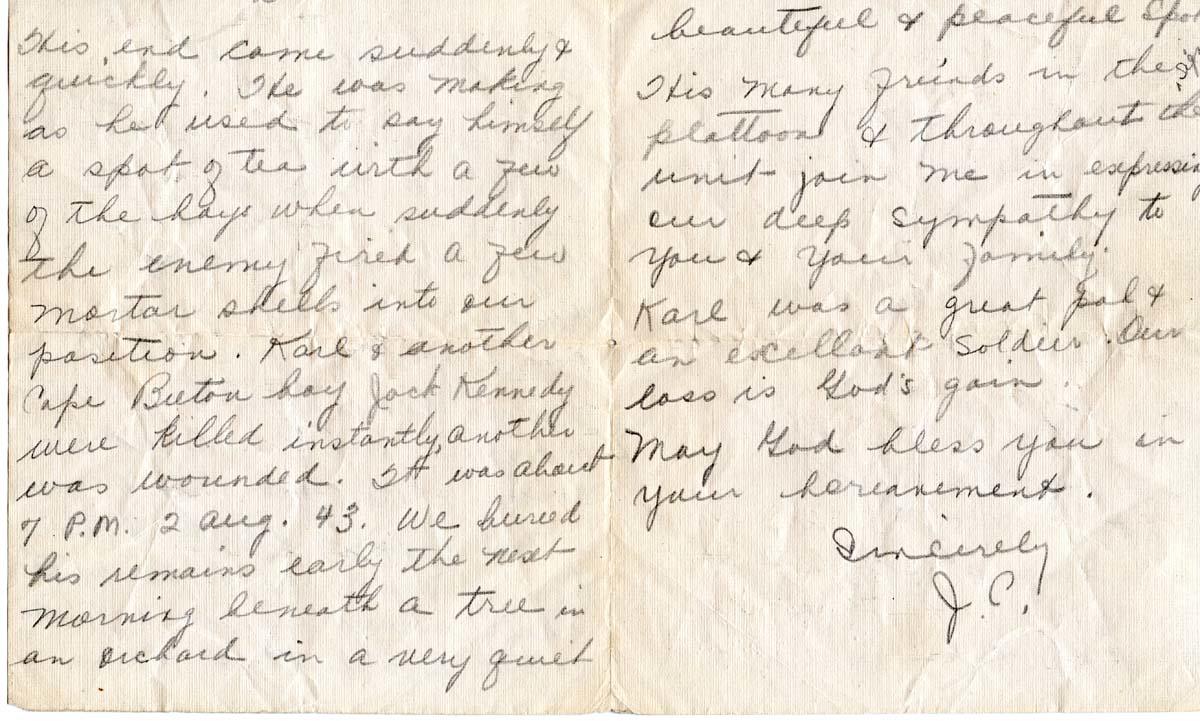 His end came suddenly &
quickly. He was making
as he used to say himself
a spot of tea with a few
of the boys when suddenly
the enemy fired a few
mortar shells into our
position. Karl & another
Cape Breton boy Jack Kennedy
were killed instantly, another
was wounded. It was about
7 P.M. 2 Aug. 43. We buried
his remains early the next
morning beneath a tree in
an orchard in a very quiet
beautiful & peaceful spot
His many friends in the
plattoon & throughout the
unit join me in expressing
our deep sympathy to
you & your family
Karl was a great pal &
an excellant soldier. Our
loss is God's gain.
May God bless you in
your bereavement.
Sincerely
J. C.